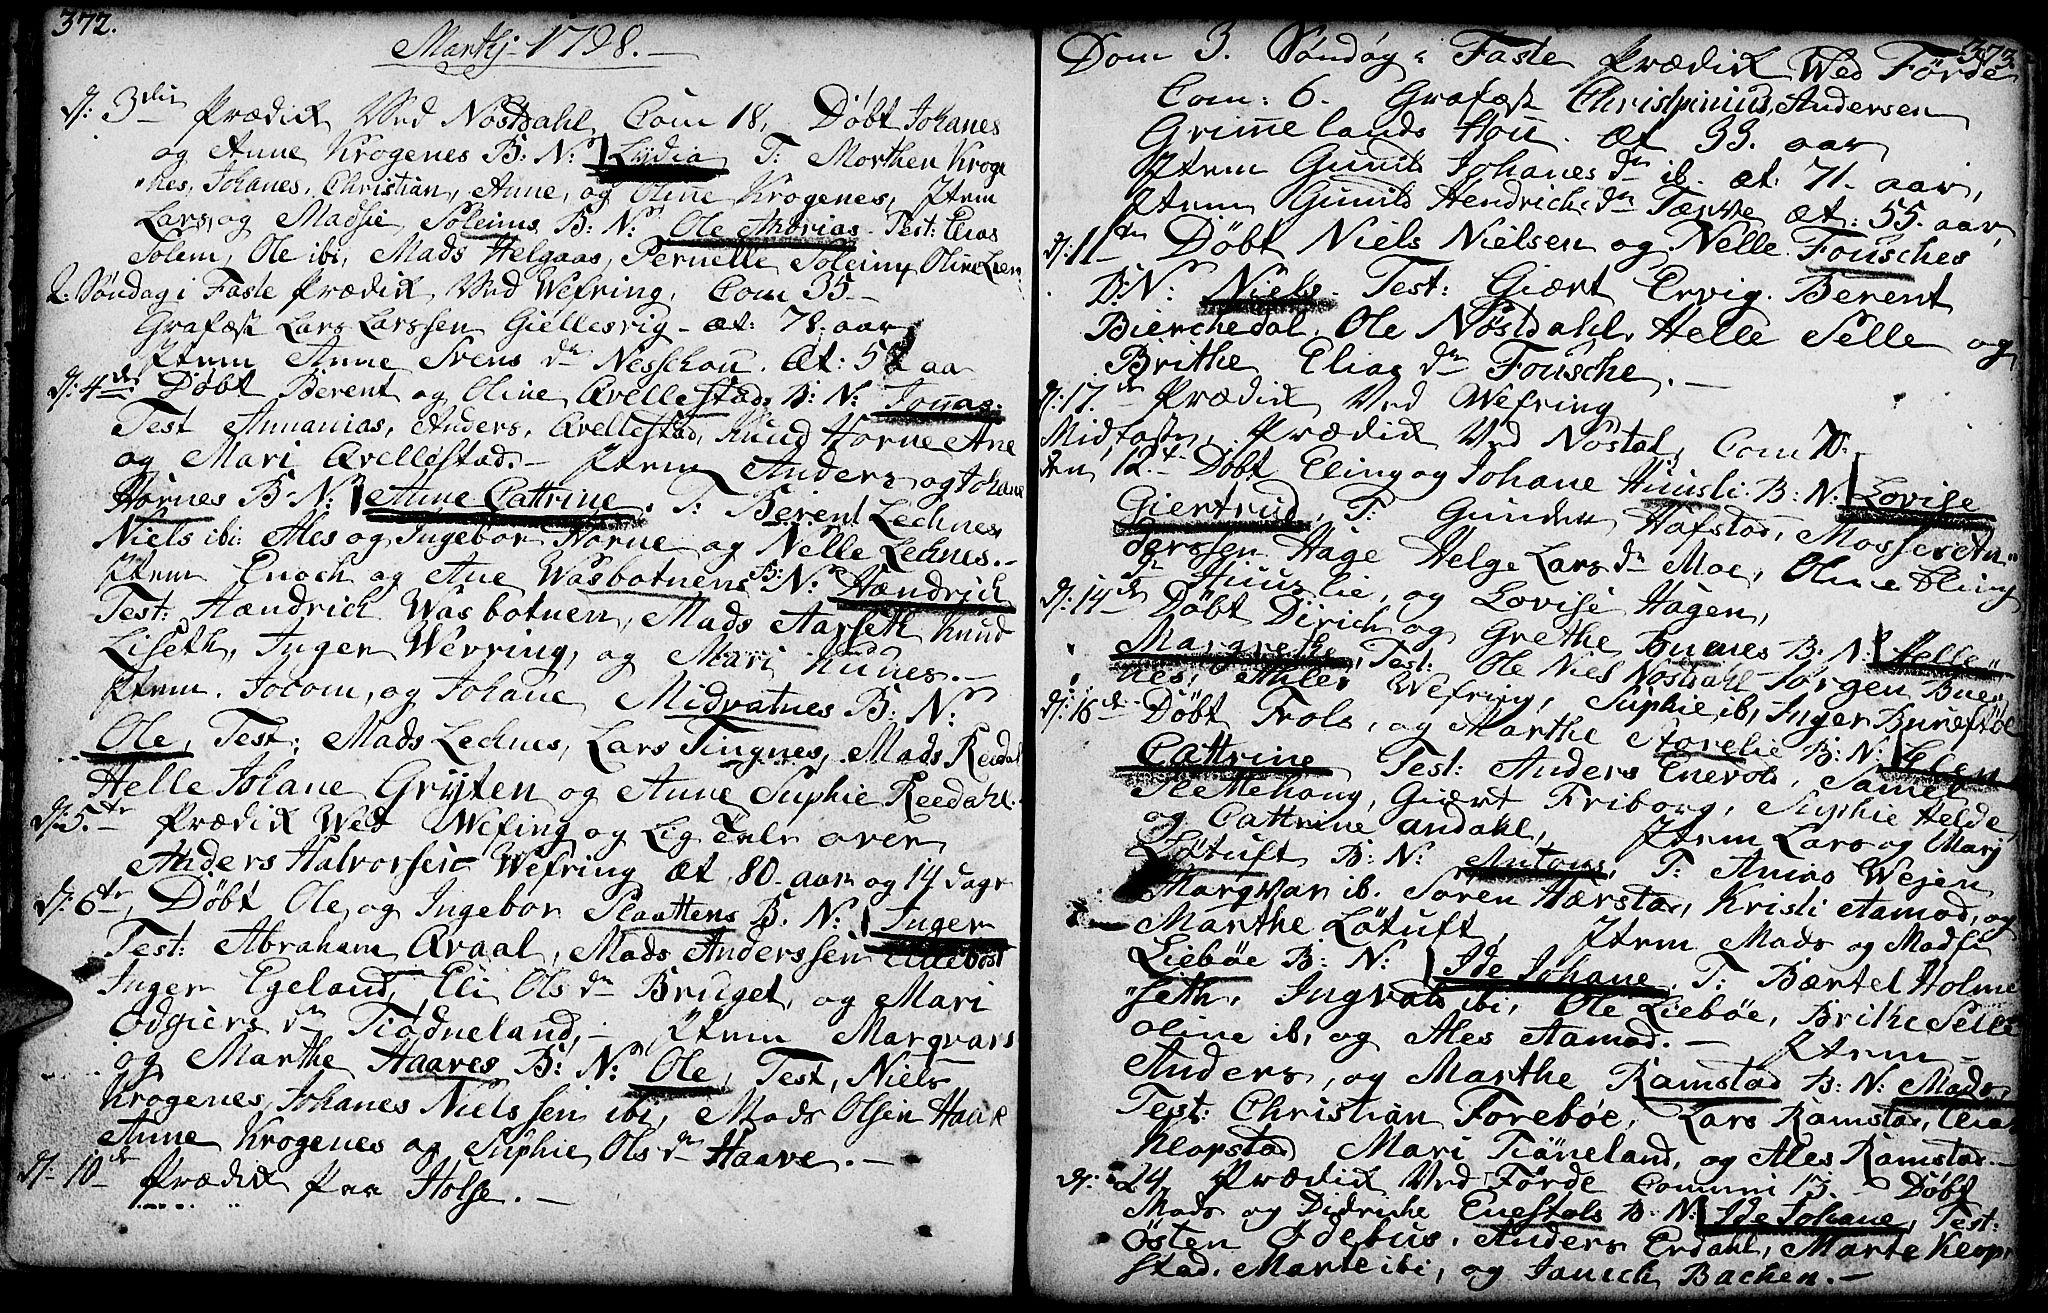 372.
Martij 1798.
d: 3die Prædik Ved Nøstdahl, Com 18, Døbt Johanes
og Anne Krogenes B: N: Lydia T: Morthen Kroge
nes, Johanes, Christian, Anne, og Oline Krogenes, Item
Lars, og Madsie Soleims B: N: Ole Andrias Test: Elias
Solem, Ole ibi, Mads Helgaas, Pernelle Soleim, Oline Lien
2: Søndag i Faste Prædik Ved Wefring, Com 35
Grafæst Lars Larssen Giellesvig æt: 78. aar
Item Anne Svens dn Nesschou. Æt: 58 aar
d: 4de Døbt Berent og Oline Qvellestads B: N: Jonas
Test Annanias, Anders, Qvellestad, Knud Horne Ane
og Mari Qvellestad. Item Anders og Johane
Hornes B: N: Anne Cattrine, T: Berent Lechnes
Niels ibi: Ales og Ingebor Horne og Nelle Lechnes.
Item Enoch og Ane Wasbotnens B: N: Hændrich
Test: Hændrich Wasbotnen, Mads Aarseth Knud
Liseth, Inger Werring, og Mari Kudnes.
Item. Jocom, og Johane Midvatnes B: N:
Ole, Test: Mads Lechnes, Lars Tingnes, Mads Reedal
Helle Johane Gryten og Anne Suphie Reedahl.
d: 5te Prædik Wed Wefring og Lig Tale over
Anders Halvorsen Wefring æt 80. aar og 14 dage
d: 6te Døbt Ole, og Ingebor Slaattens B: N: Inger
Test: Abraham Qvaal, Mads Anderssen Ellebost
Inger Egeland, Eli Ols dn Bruget, og Mari
Odgiers dn Tiødneland, Item Marqvars
og Marthe Haares B: N: Ole, Test, Niels
Krogenes, Johanes Nielssen ibi, Mads Olsen Haare
Anne Krogenes og Suphie Ols dn Haare.
d: 10de Prædik paa Holse.
373
Dom 3. Søndag i Faste Prædik Wed Førde
Com: 6. Grafæst Christpinius Andersen
Grimelands Hou. æt 33. aar
Item Gunild Johanes dn ib. æt: 71. aar,
Item Gunild Hendrichs dn Tærve æt: 55. aar,
d: 11te Døbt Niels Nielsen og Nelle Fousches
B: N: Niels. Test: Giært Ervig. Berent
Bierchedal, Ole Nøstdahl, Helle Selle og
Brithe Elias dn Fousche.
d: 17de Prædik Ved Wefring
Midfaste, Prædik Ved Nøstal, Com 70.
den 12te Døbt Eling og Johane Huusli. B: N: Lovise
Giertrud, T: Gunder Hafstad, Mosses An
derssen Hage Helge Lars dn Moe, Oline Eling
dn Huuslie, og Lovise Hagen,
d: 14de Døbt Dirich og Grethe Buenes B: N: Helle
Margrethe, Test: Ole Niels Nøstdahl Jorgen Bue
nes, Wefring, Suphie ib, Inger
d: 16de Døbt Trols, og Marthe B: N: Elen
Cattrine Test: Anders Enevold, Samel
Slemehoug, Giært Friborg, Suphie Helde
og Cattrine andahl, Item Lars og Marj
Løtuft B: N: Antons, T: Anners Wejen
Marqvar ib. Søren Hærstad, Kristi Aamod, og
Marthe Løtuft, Item Mads og Madsi
Liebøe B: N: Ide Johane, T: Bærtel Holme
seth, Ingvald ibi, Ole Liebøe, Brithe Selle
Oline ib, og Ales Aamod. Item
Anders, og Marthe Ramstad B: N: Mads,
Test: Christian Forebøe, Lars Ramstad, Elias
Klopstad Mari Tiøneland, og Ales Ramstad.
d: 24 Prædik Ved Førde Communi 13. Døbt
Mads og Didriche Enestols B: N: Ide Johane, Test:
Østen Idebus, Anders Erdahl, Marte Klop
stad, Marte ibi, og Janich Bachen.